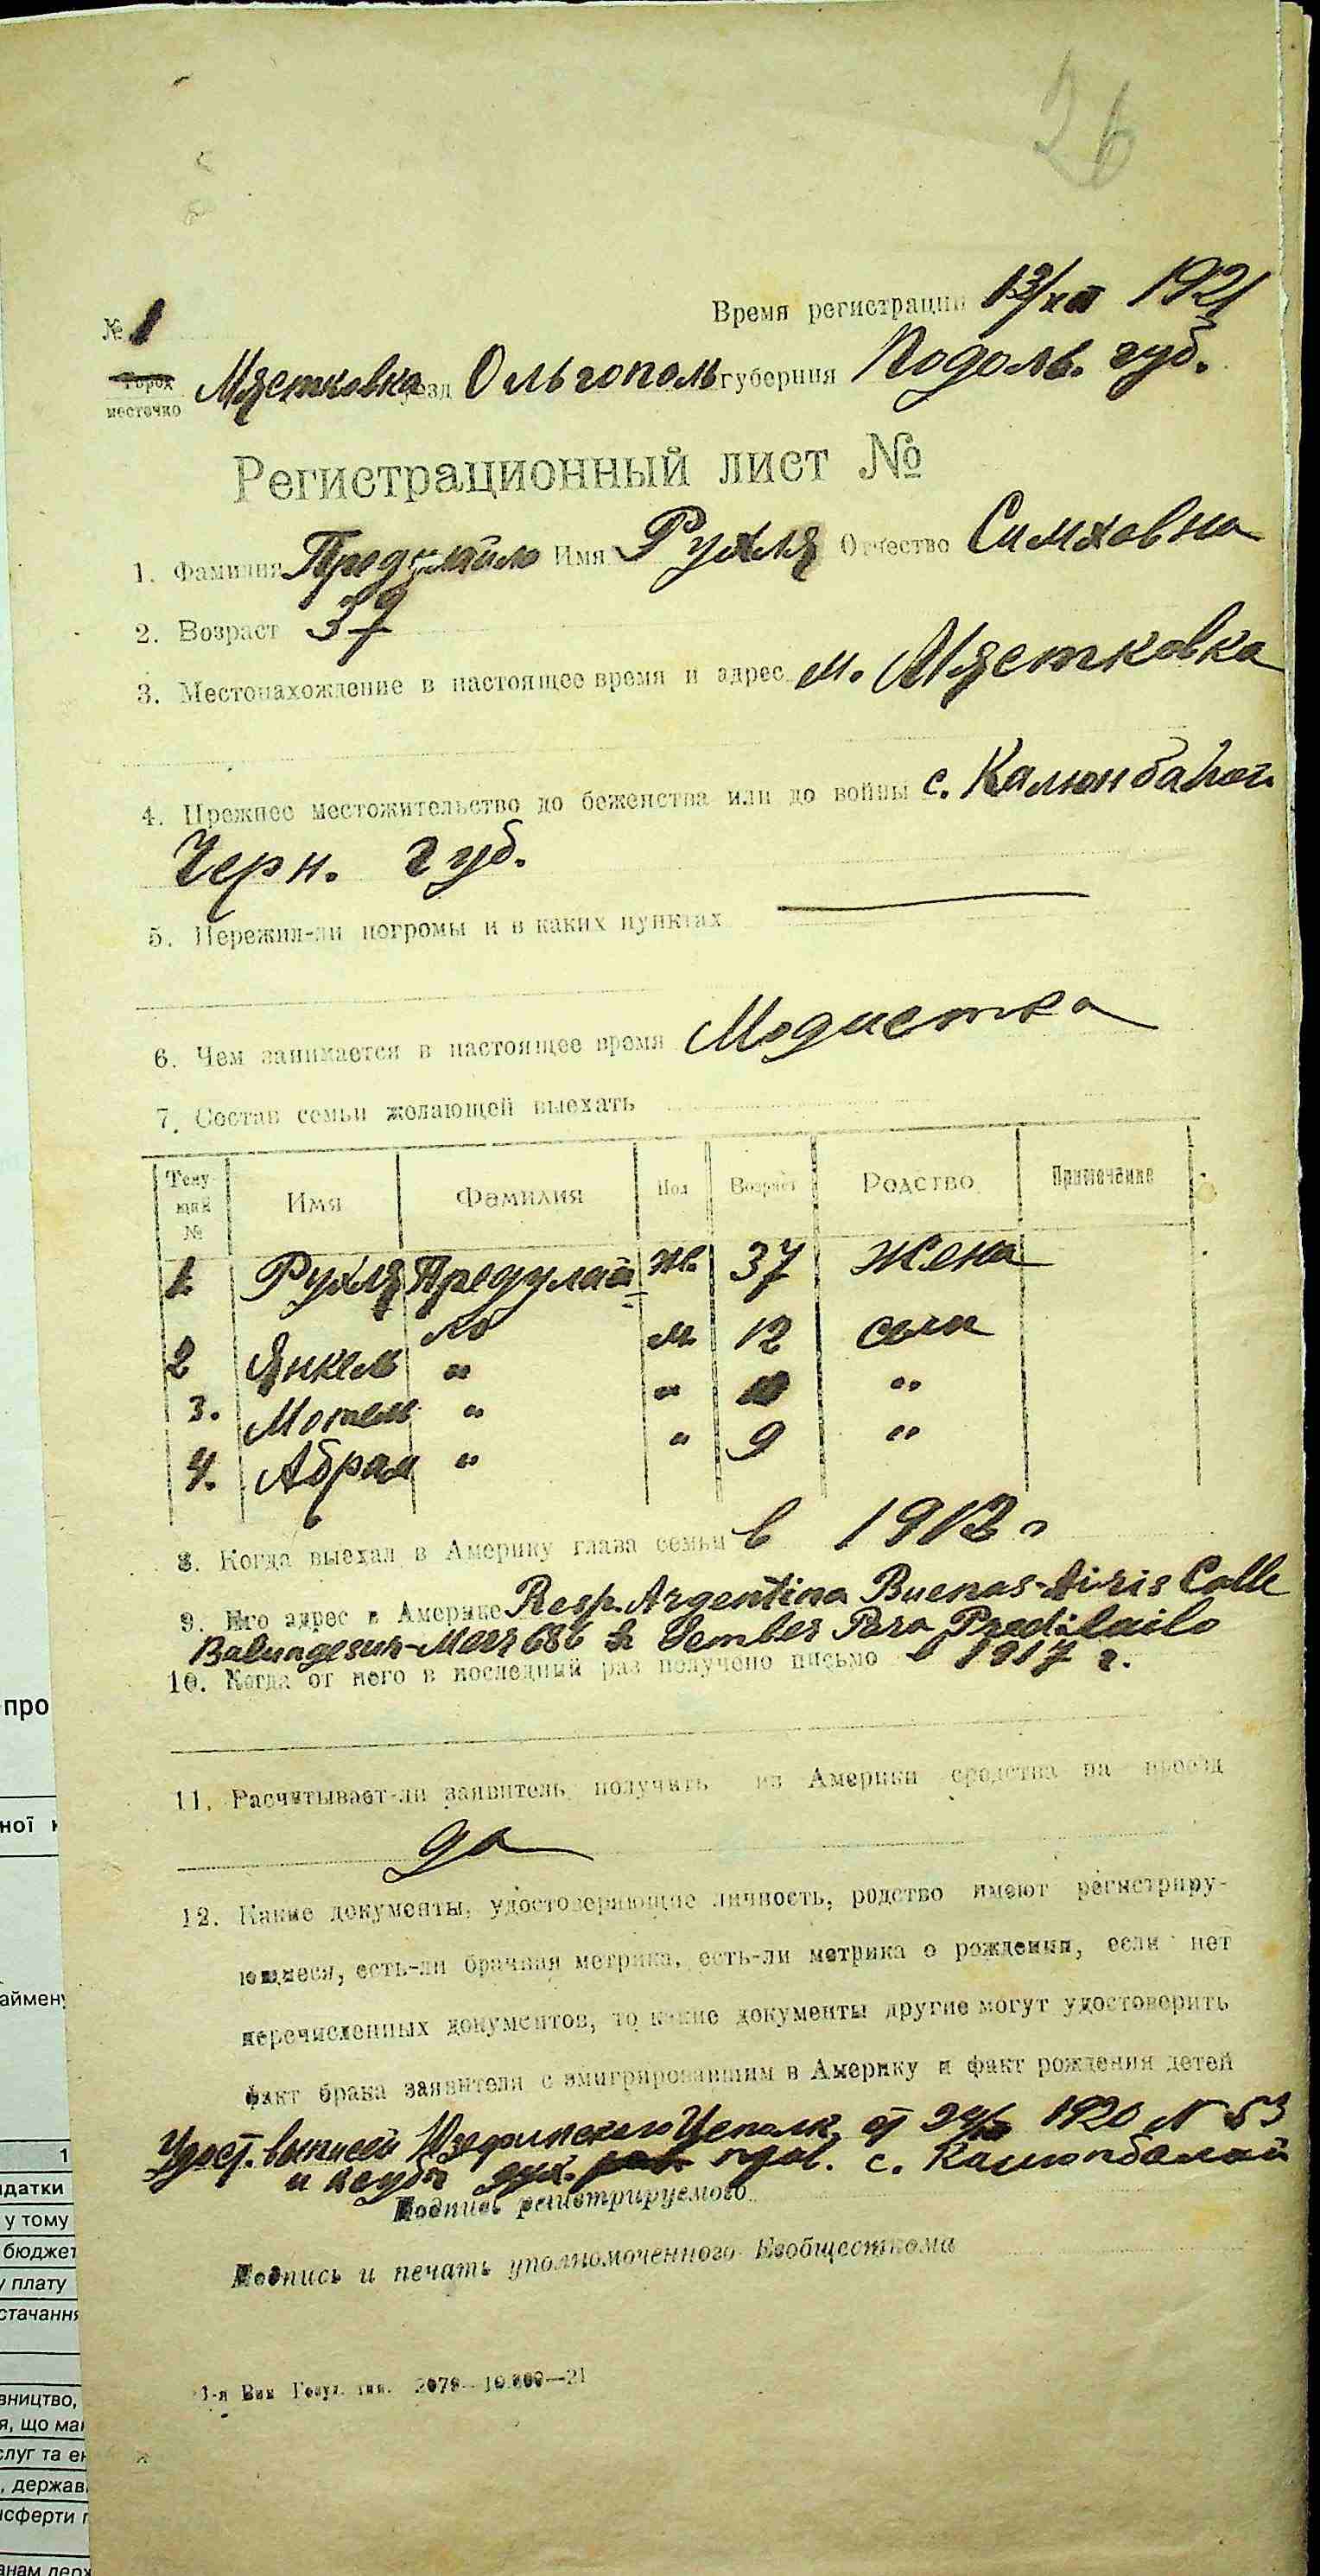 26
№ 1 Время регистрации 13/XII 1921
город
местечко Мястковка уезд Ольгополь губерния Подоль. губ.
Регистрационный лист №
1. Фамилия Имя Рухля Отчество Симховна
2. Возраст 37
3. Местонахождение в настоящее время и адрес м. Мястковка
4. Прежнее местожительство до беженства или до войны с.
Черн. губ.
5. Пережил-ли погромы и в каких пунктах
6. Чем занимается в настоящее время Модистка
7. Состав семьи желающей выехать
Теку-
щий
№ Имя Фамилия Пол Возраст Родство Примечание
1. Рухля Предулай ж. 37 Жена
ло
2 Янкель " м 12 сын
3. Мотель " " "
4. Абрам " " 9 "
8. Когда выехал в Америку глава семьи в 1912 г
9. Его адрес в Америке Resp. Argentina Buenas-Airis Calle
686 Para Predilailo
10. Когда от него в последний раз получено письмо в 1917 г.
11. Расчитывает-ли заявитель получить из Америки средства на проезд
да
12. Какие документы, удостоверяющие личность, родство имеют регистриру-
ющиеся, есть-ли брачная метрика, есть-ли метрика о рождении, если нет
перечисленных документов, то какие документы другие могут удостоверить
факт брака заявителя с эмигрировавшим в Америку и факт рождения детей
Удост. выписей от 1920 N 53
и с.
Подпись регистрируемого
Подпись и печать уполномоченного Евобщесткома
2079—10.000—21
про
ної
аймену
1
идатки
у тому
бюджет
у плату
стачання
вництво,
я, що ма
слуг та ен
, держав
нсферти
анам держ